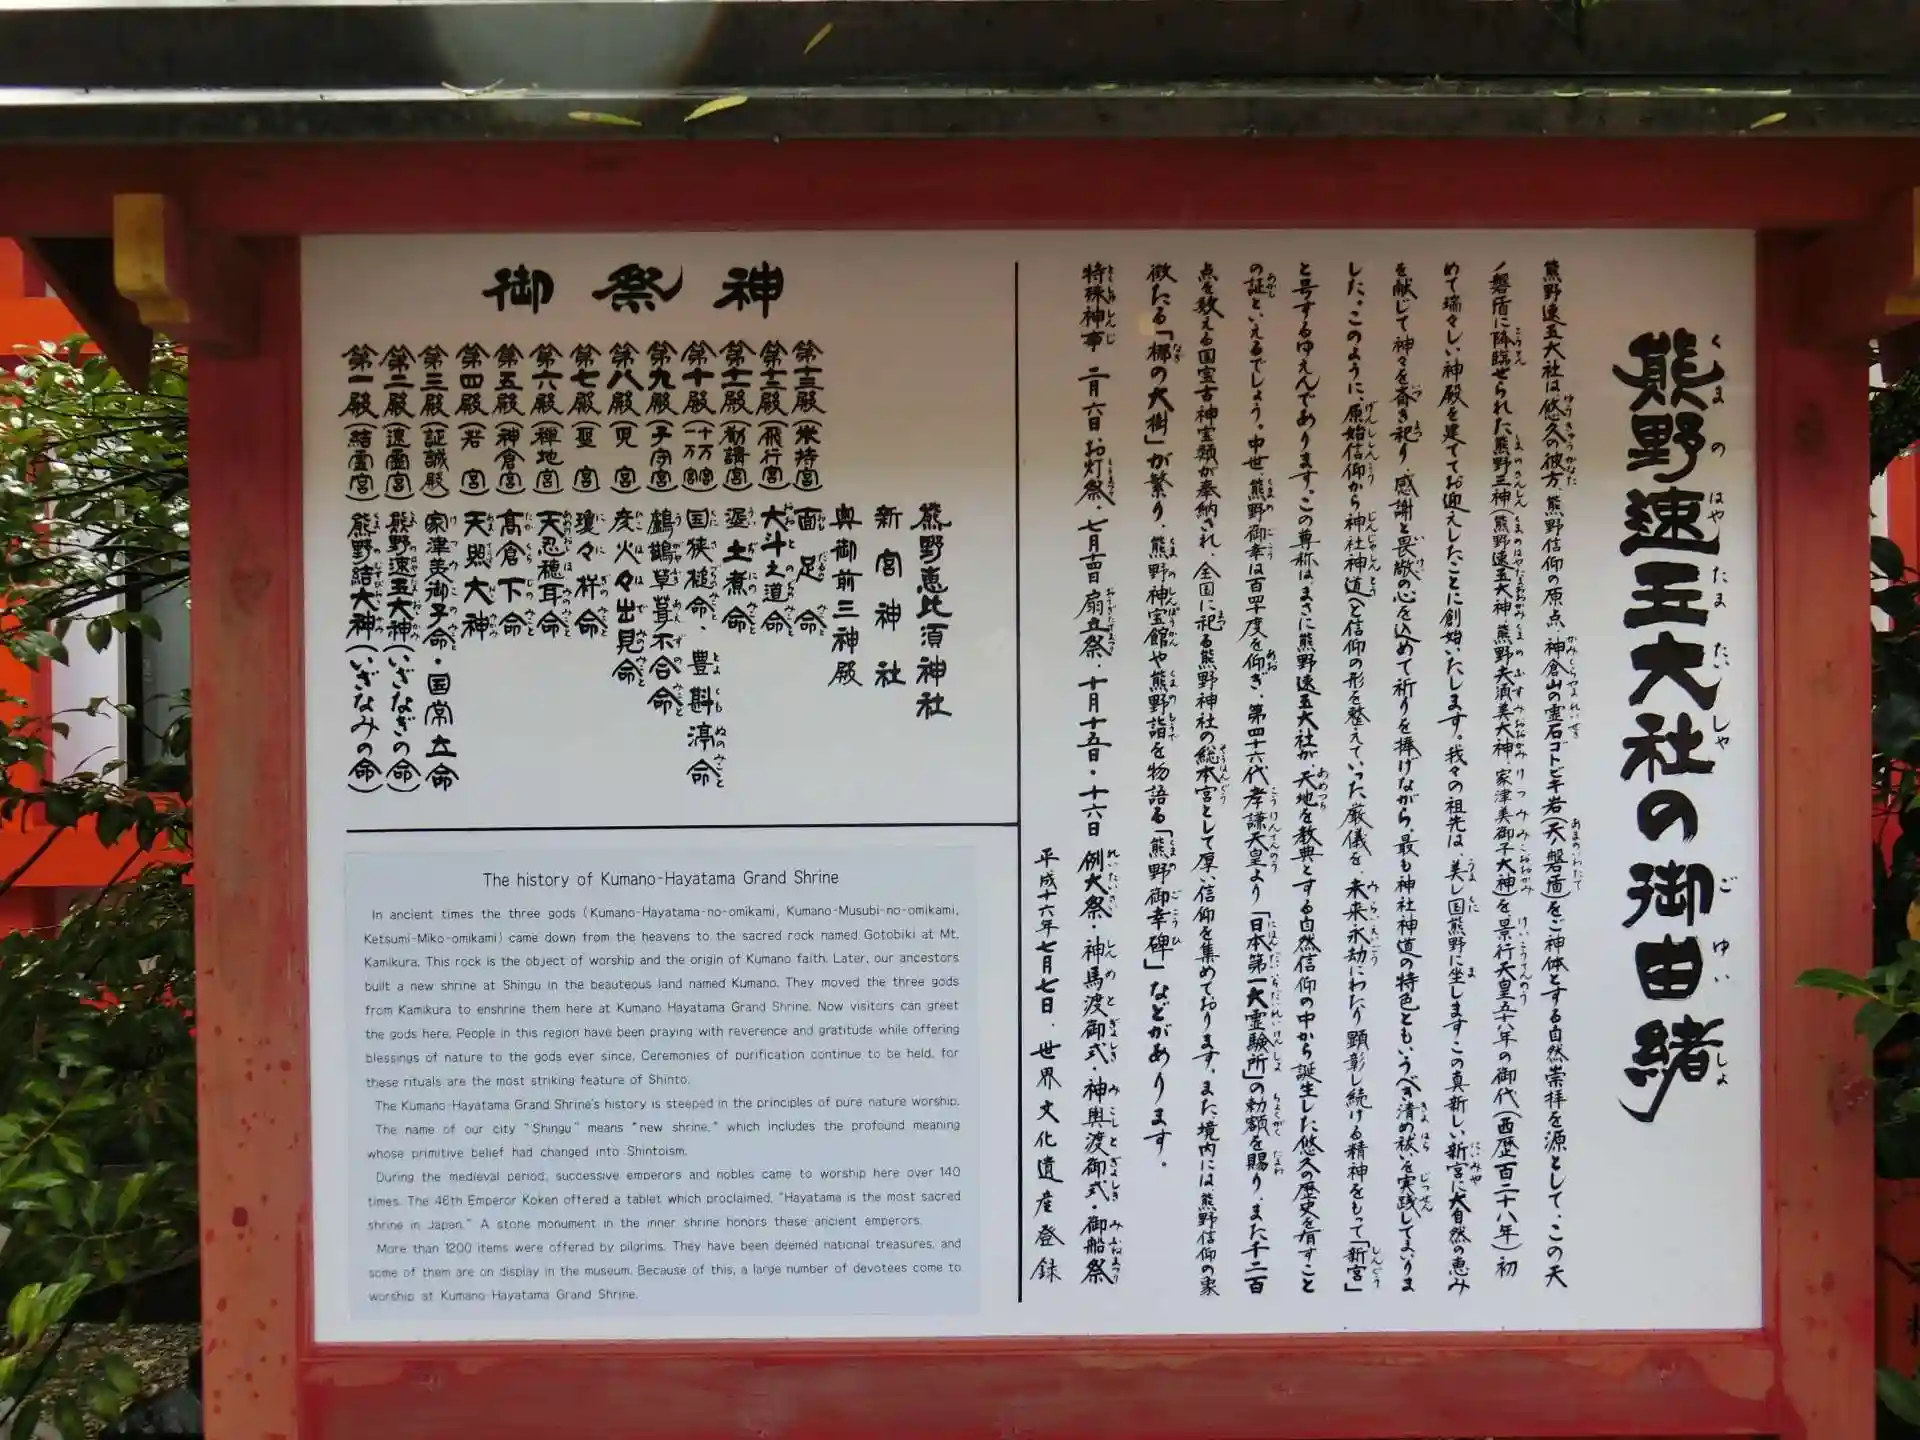 熊野速玉大社の御由緒
熊野速玉大社は悠久の彼方、熊野信仰の原点、神倉山の霊石ゴトビキ岩(天ノ磐盾)をご神体とする自然崇拝を源として、この天
ノ磐盾に降臨せられた熊野三神(熊野速玉大神・熊野夫須美大神・家津美御子大神)を景行天皇五十八年の御代(西歴百二十八年)初
めて瑞々しい神殿を建ててお迎えしたことに創始いたします。我々の祖先は、美し国熊野に坐しますこの真新しい新宮に大自然の恵み
を献じて神々を斎き祀り、感謝と畏敬の心を込めて祈りを捧げながら、最も神社神道の特色ともいうべき清め祓いを実践してまいりま
した。このように、原始信仰から神社神道へと信仰の形を整えていった厳儀を、未来永劫にわたり顕彰し続ける精神をもって「新宮」
と号するゆえんであります。この尊称は、まさに熊野速玉大社が、天地を教典とする自然信仰の中から誕生した悠久の歴史を有すこと
の証といえるでしょう。中世、熊野御幸は百四十度を仰ぎ、第四十六代孝謙天皇より「日本第一大霊験所」の勅額を賜り、また千二百
点を数える国宝古神宝類が奉納され、全国に祀る熊野神社の総本宮として厚い信仰を集めております。また境内には熊野信仰の象
徴たる「梛の大樹」が繁り、熊野神宝館や熊野詣を物語る「熊野御幸碑」などがあります。
特殊神事 二月六日お灯祭、七月十四日扇立祭、十月十五日・十六日 例大祭・神馬渡御式・神輿渡御式・御船祭
平成十六年七月七日、世界文化遺産登録
御祭神
熊野恵比須神社
新宮神社
奥御前三神殿
第十三殿(米持宮) 面足命
第十二殿(飛行宮) 大斗之道命
第十一殿(勧請宮) 泥土煮命
第十殿(一万宮 十万宮) 国狭槌命・豊斟渟命
第九殿(子守宮) 鸕鶿草葺不合命
第八殿(児宮) 彦火々出見命
第七殿(聖宮) 瓊々杵命
第六殿(禅地宮) 天忍穂耳命
第五殿(神倉宮) 高倉下命
第四殿(若宮) 天照大神
第三殿(証誠殿) 家津美御子命・国常立命
第二殿(速霊宮) 熊野速玉大神(いざなぎの命)
第一殿(結霊宮) 熊野結大神(いざなみの命)
The history of Kumano-Hayatama Grand Shrine
In ancient times the three gods (Kumano-Hayatama-no-omikami, Kumano-Musubi-no-omikami,
Ketsumi-Miko-omikami) came down from the heavens to the sacred rock named Gotobiki at Mt.
Kamikura. This rock is the object of worship and the origin of Kumano faith. Later, our ancestors
built a new shrine at Shingu in the beauteous land named Kumano. They moved the three gods
from Kamikura to enshrine them here at Kumano Hayatama Grand Shrine. Now visitors can greet
the gods here. People in this region have been praying with reverence and gratitude while offering
blessings of nature to the gods ever since. Ceremonies of purification continue to be held, for
these rituals are the most striking feature of Shinto.
The Kumano-Hayatama Grand Shrine's history is steeped in the principles of pure nature worship.
The name of our city "Shingu" means "new shrine," which includes the profound meaning
whose primitive belief had changed into Shintoism.
During the medieval period, successive emperors and nobles came to worship here over 140
times. The 46th Emperor Koken offered a tablet which proclaimed, "Hayatama is the most sacred
shrine in Japan." A stone monument in the inner shrine honors these ancient emperors.
More than 1200 items were offered by pilgrims. They have been deemed national treasures, and
some of them are on display in the museum. Because of this, a large number of devotees come to
worship at Kumano Hayatama Grand Shrine.